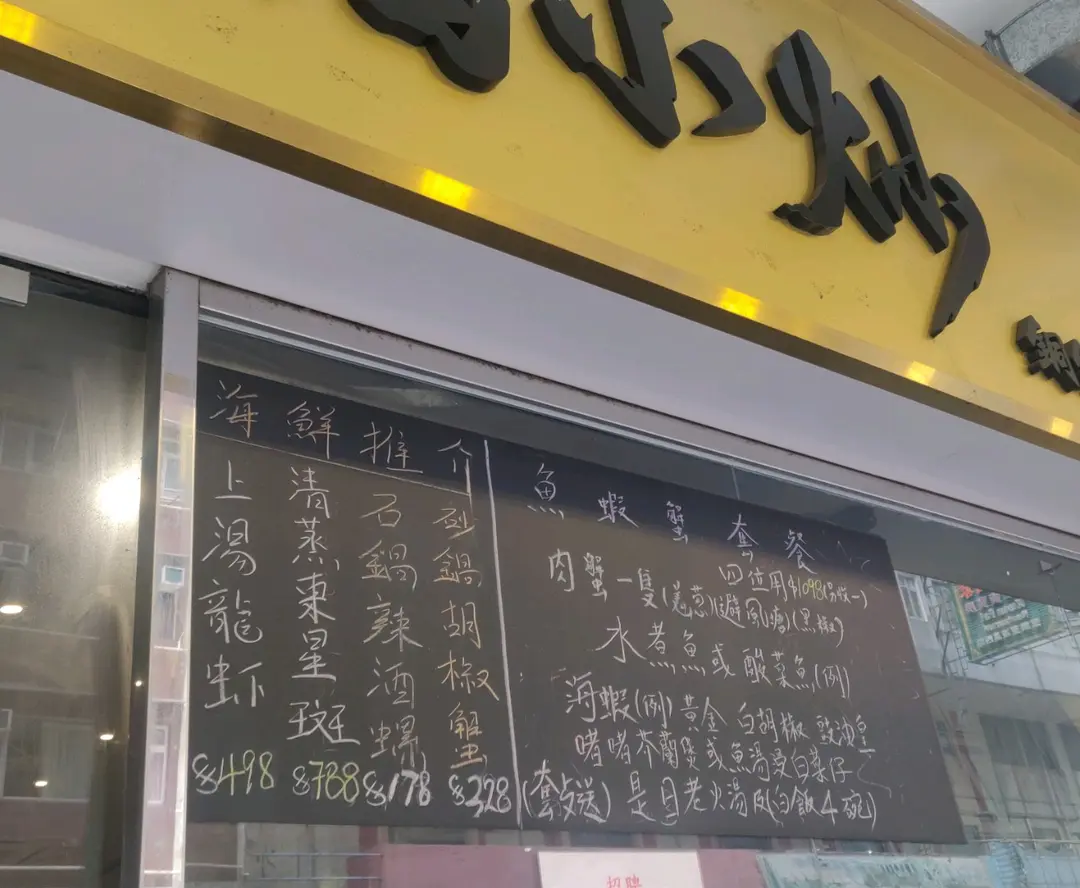 小炒
海鮮推介
上湯龍虾
$498
清蒸東星斑
$788
石鍋辣酒螺
$178
砂鍋胡椒蟹
$328
魚蝦蟹套餐
四位用$1098(另收一)
肉蟹一隻(薑葱)(避風塘)(黑椒)
水煮魚或酸菜魚(例)
海蝦(例)黃金 白胡椒 豉油皇
啫啫芥蘭煲或魚湯浸白菜仔
(套送)是日老火湯 白飯4碗)
招聘